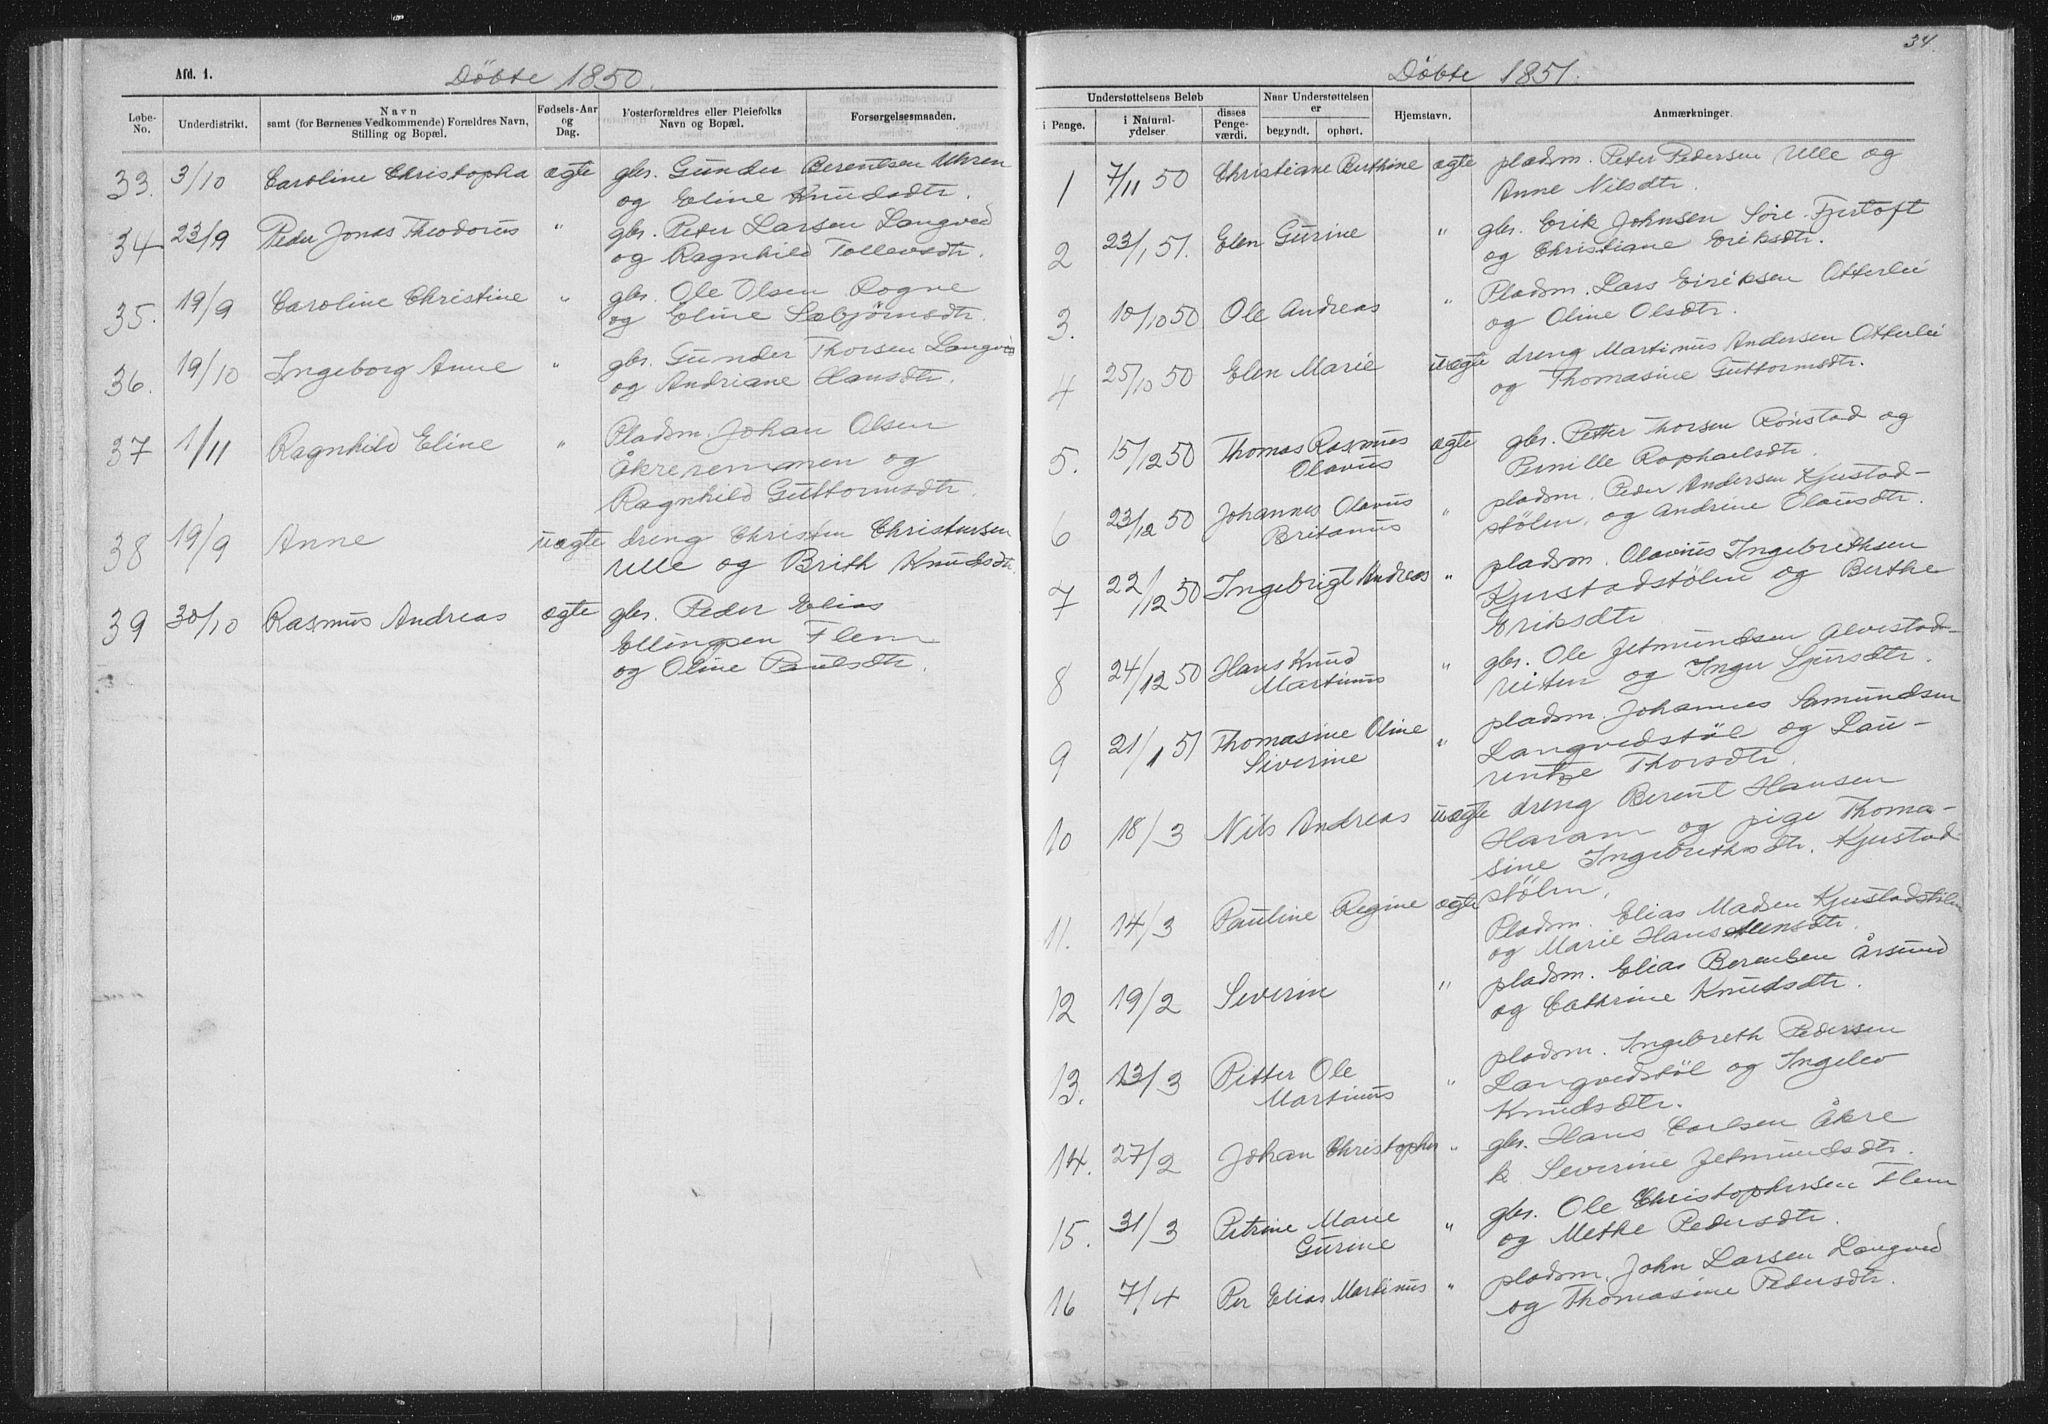 Afd. 1.
Döbte 1850.
Løbe-No.
Underdistrikt.
Navn
samt (for Børnenes Vedkommende) Forældres Navn,
Stilling og Bopæl.
Fødsels-Aar
og
Dag.
Fosterforældres eller Pleiefolks
Navn og Bopæl.
Forsørgelsesmaaden.
33. 3/10 Caroline Christopha ægte gbr. Gunder Berentsen Uhren
og Eline Knudsdtr.
34 23/9 Peder Jonas Theodorus " gbr. Peter Larsen Langved
og Ragnhild Tollevsdtr.
35. 19/9 Caroline Christine " gbr. Ole Olsen Rogne
og Eline Sæbjørnsdtr.
36. 19/10 Ingeborg Anne " gbr. Gunder Thorsen Langved
og Andriane Hansdtr.
37 1/11 Ragnhild Eline " Pladsm. Johan Olsen
Åkreremanen og
Ragnhild Guttormsdtr.
38 19/9 Anne uægte dreng Christen Christensen
Ulle og Brith Knudsdtr.
39 30/10 Rasmus Andreas ægte gbr. Peder Elias
Ellingsen Flem
og Oline Paulsdtr.
34.
Döbte 1851.
Understøttelsens Beløb
i Penge.
i Natural-
ydelser
disses
Penge-
værdi.
Naar Understøttelsen
er
begyndt.
ophørt.
Hjemstavn.
Anmærkninger.
1 7/11 50 Christiane Berthine ægte pladsm. Peter Pedersen Ulle og
Anne Nilsdtr.
2 23/1 51. Elen Gurine " gbr. Erik Johnsen Søre-Fjertoft
og Christiane Eriksdtr.
3. 10/10 50 Ole Andreas " Pladsm. Lars Eiriksen Otterlei
og Oline Olsdtr.
4 25/10 50 Elen Marie uægte dreng Martinus Andersen Otterlei
og Thomasine Guttormsdtr.
5. 15/12 50 Thomas Rasmus ægte gbr. Petter Thorsen Rønstad og
Olavus Pernille Raphaelsdtr.
6 23/12 50 Johannes Olavus " pladsm. Peder Andersen Kjerstad-
Britanus stølen, og Andrine Olausdtr.
7 22/12 50 Ingebrigt Andreas " pladsm. Olavius Ingebrethsen
Kjerstadstølen og Berthe
Eriksdtr
8 24/12 50 Hans Knud " gbr. Ole Jetmundsen Alvestad-
Martinus reiten og Inger Sjursdtr.
9 21/1 51 Thomasine Oline " pladsm. Johannes Samundsen
Siverine Langvedstøl og Lau-
rentze Thorsdtr.
10 18/3 Nils Andreas uægte dreng Berent Hansen
Haram og pige Thoma-
sine Ingebrethsdtr. Kjerstad-
stølen.
11. 14/3 Pauline Regine ægte Pladsm. Elias Madsen Kjerstadstølen
og Marie Hans dtr.
12 19/2 Severin " pladsm. Elias Berentsen Årsund
og Cathrine Knudsdtr.
13. 13/3 Petter Ole " pladsm. Ingebreth Pedersen
Martinus Langvedstøl og Ingelev
Knudsdtr.
14. 27/2 Johan Christopher " gbr. Hans Carlsen Åkre
k Severine Jetmundsdtr.
15. 31/3 Petrine Marie " gbr. Ole Christophersen Flem
Gurine og Methe Pedersdtr.
16 7/4 Per Elias Martinus " pladsm. John Larsen Langved
og Thomasine Pedersdtr.